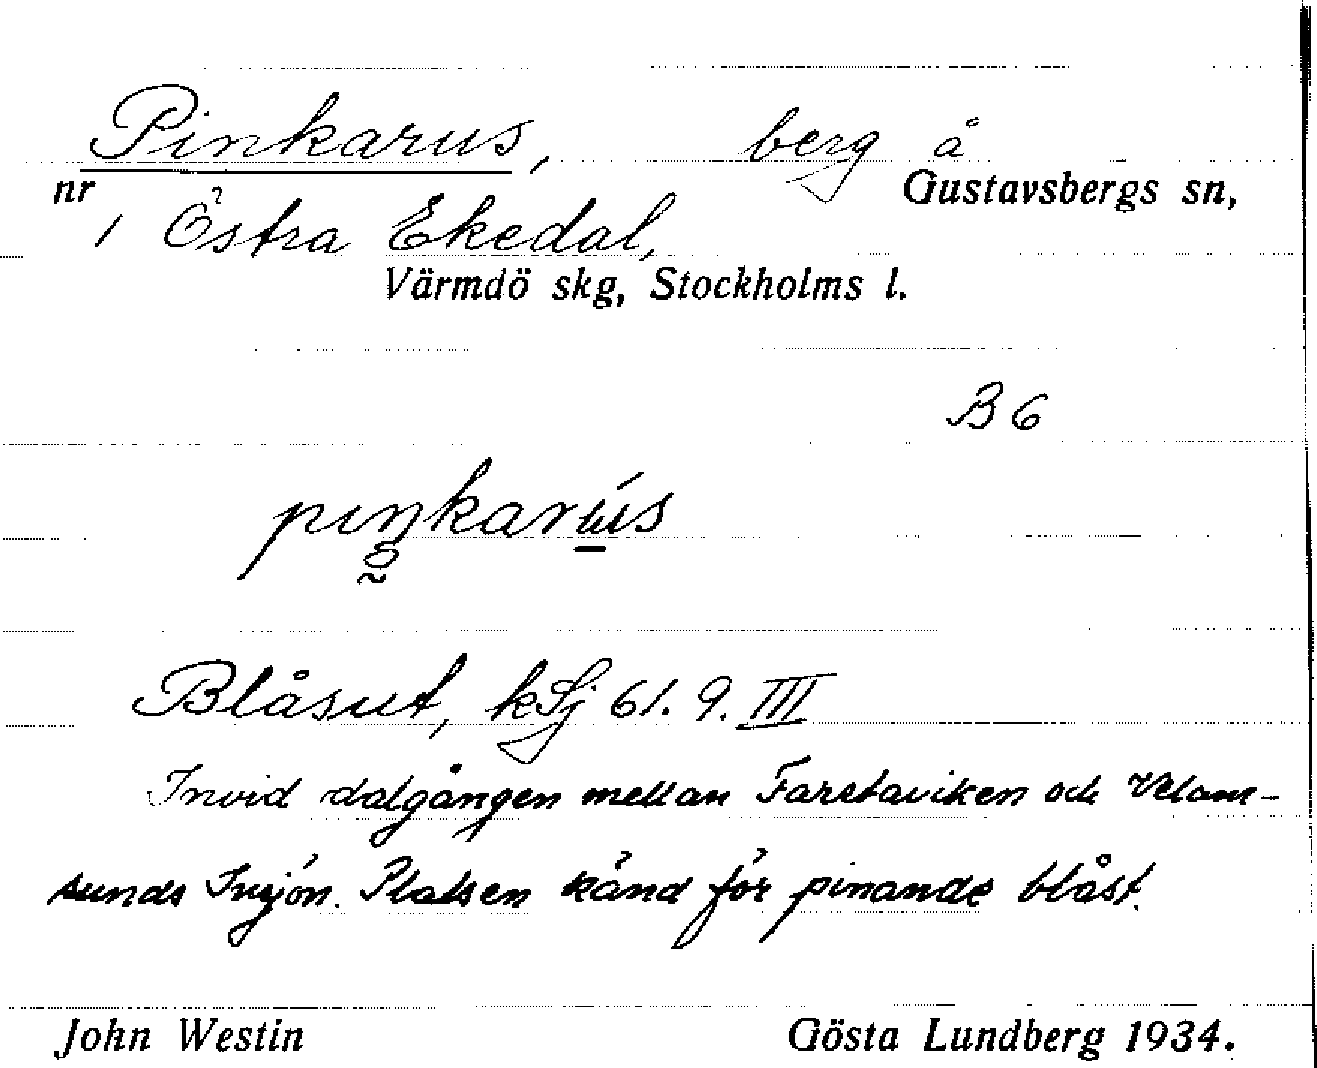 Pinkarus, berg å
nr Gustavsbergs sn,
1 Östra Ekedal,
Värmdö skg, Stockholms l.
B 6
Blåsut, kSj 61. 9. III
Invid dalgången mellan Farstaviken och Velam-
sunds Insjön. Platsen känd för pinande blåst.
John Westin Gösta Lundberg 1934.